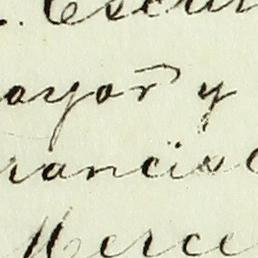 . Escri
ayor y
rancisc
Merce